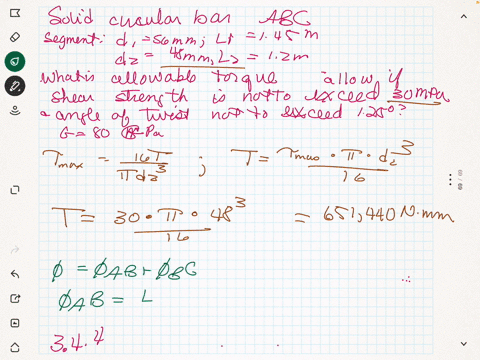 Solid circular bar ABC
segment: d1 = 56mm; L1 = 1.45 m
d2 = 48mm, L2 = 1.2m
what is allowable torque allow, if
shear strength is not to exceed 30MPa
angle of twist not to exceed 1.25°?
G = 80 GPa
τmax = 16T / πd2³ ; T = τmax • π • d2³ / 16
T = 30 • π • 48³ / 16 = 651,440 N•mm
φ = φAB + φBC
φAB = L
3.4.4